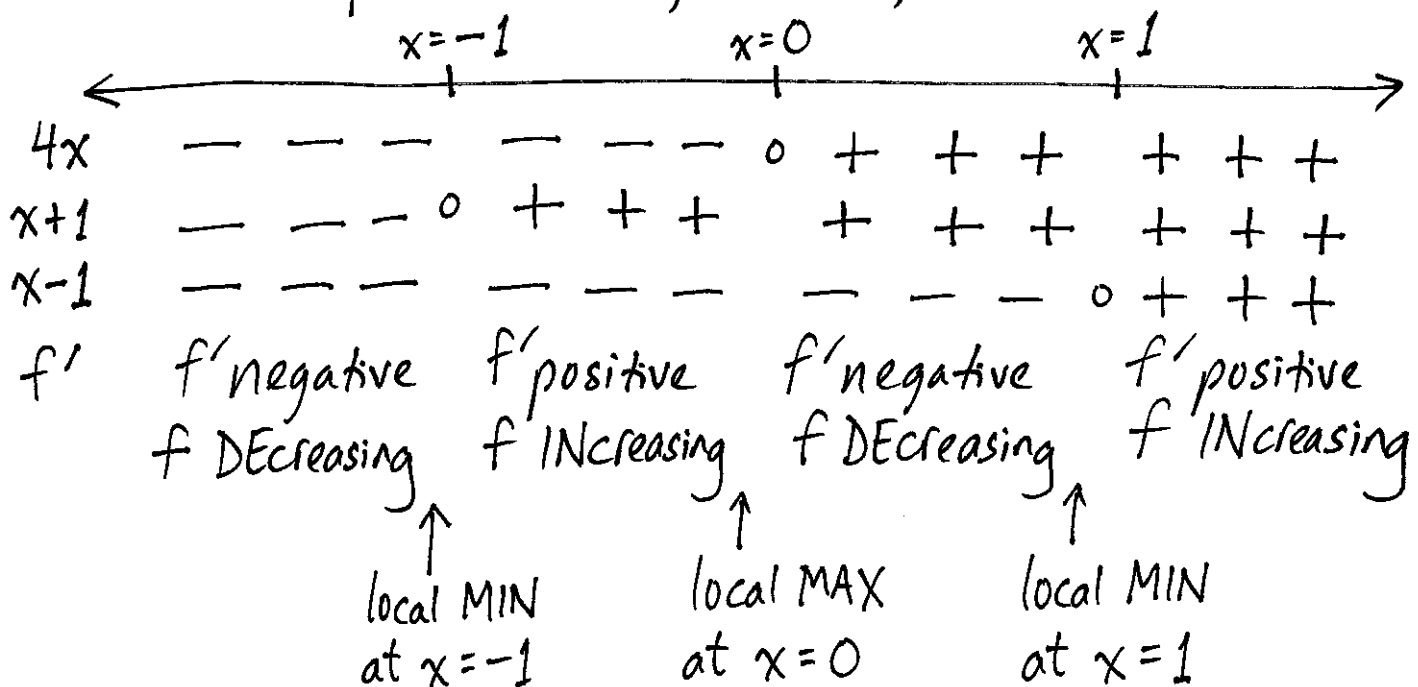 x=-1 x=0 x=1
4x − − − − − − 0 + + + + + +
x+1 − − − 0 + + + + + + + + +
x-1 − − − − − − − − − 0 + + +
f′ f′ negative f′ positive f′ negative f′ positive
f DEcreasing f INcreasing f DEcreasing f INcreasing
↑ ↑ ↑
local MIN local MAX local MIN
at x=-1 at x=0 at x=1